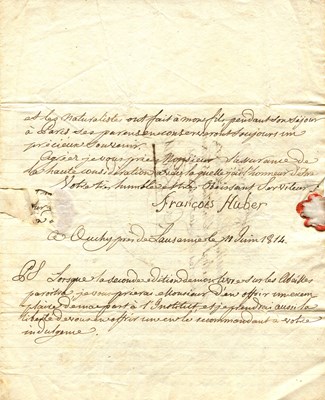 et les Naturalistes ont fait à mon fils pendant son séjour
à Paris ses parens en conserveront toujours un
précieux souvenir
Agréez je vous prie Monsieur l'assurance de
la haute considération avec laquelle j'ai l'honneur d'être
Votre très humble et très obéissant Serviteur
François Huber
à Ouchy près de Lausanne le Juin 1814.
PS Lorsque la seconde édition de mon livre sur les Abeilles
paroitra je vous prierai Monsieur d'en offrir un exem
plaire de ma part à l'Institut et je prendrai aussi la
liberté de vous en offrir un en le recommandant à votre
indulgence